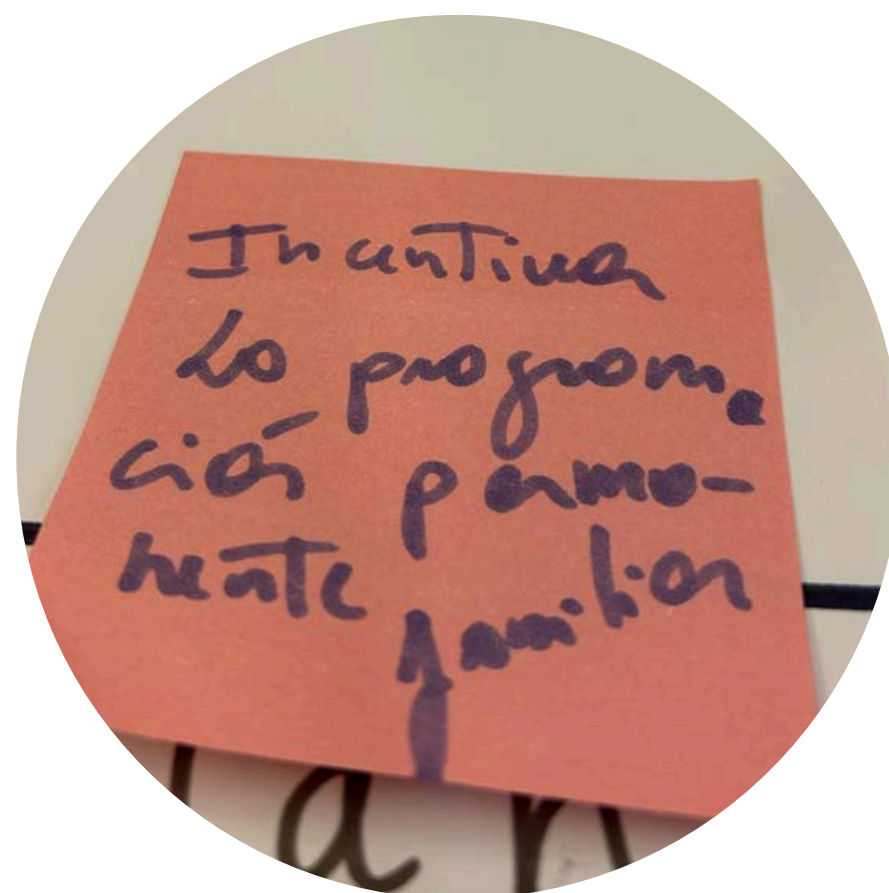 Incentivar
la programa
ción perma-
nente familiar
an